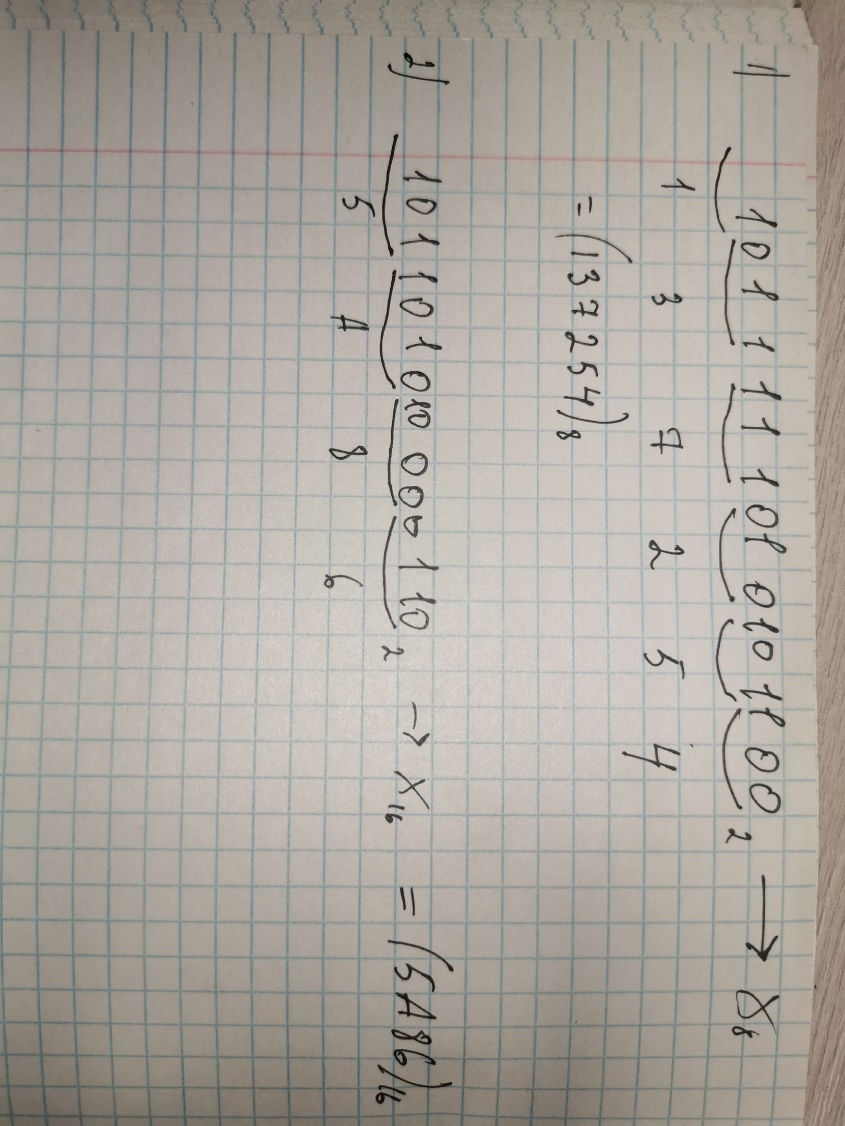 1) 1011111010101100₂ → X₈
1 3 7 2 5 4
= (137254)₈
2) 101101010000110₂ → X₁₆ = (5A86)₁₆
5 A 8 6